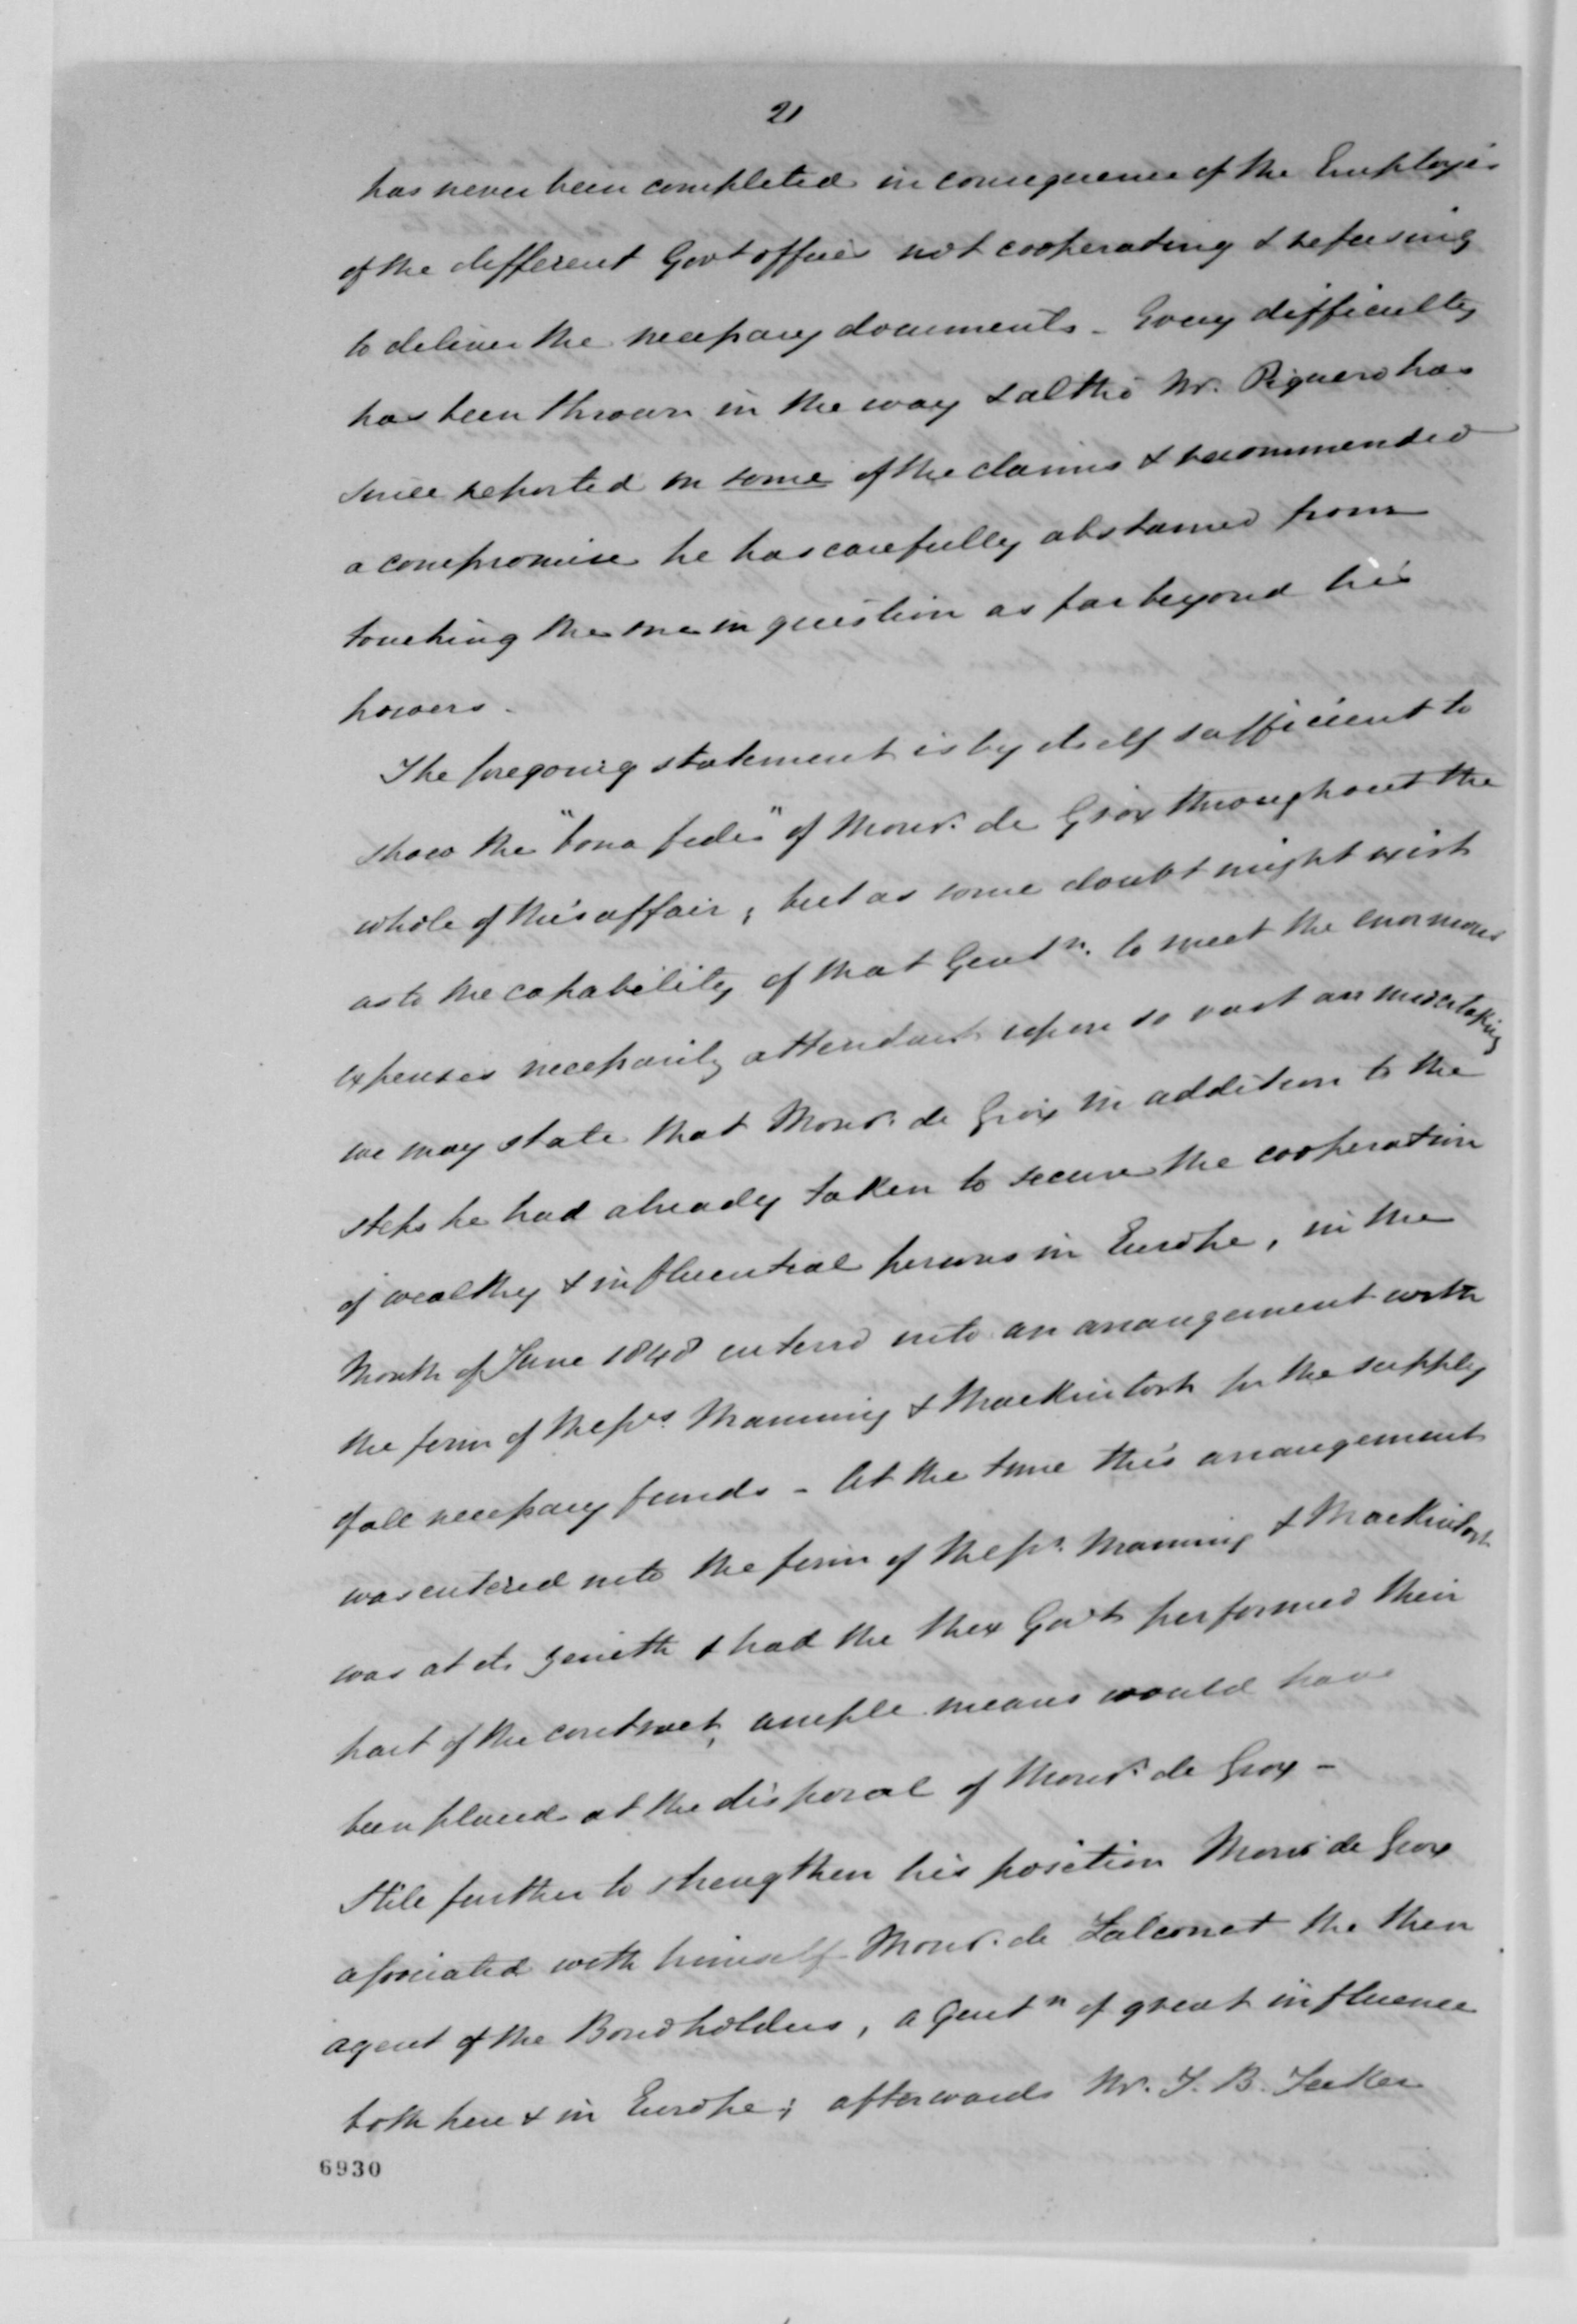 21
has never been completed in consequence of the Employés
of the different Govt offices not cooperating & refusing
to deliver the necessary documents - Every difficulty
has been thrown in the way & altho' Mr. Piquero has
since reported on some of the claims & recommended
a compromise he has carefully abstained from
touching the one in question as far beyond his
powers.
The foregoing statement is by itself sufficient to
show the "bona fides" of Monsr. de Grox throughout the
whole of this affair; but as some doubt might exist
as to the capability of that Gentn. to meet the enormous
expenses necessarily attendant upon so vast an undertaking
we may state that Monsr. de Grox in addition to the
steps he had already taken to secure the cooperation
of wealthy & influential persons in Europe, in the
Month of June 1848 entered into an arrangement with
the firm of Messrs. Manning & Mackintosh for the supply
of all necessary funds - At the time this arrangement
was entered into the firm of Messrs. Manning & Mackintosh
was at its zenith & had the Mex Govt performed their
part of the contract, ample means would have
been placed at the disposal of Monsr. de Grox -
Still further to strengthen his position Monsr de Grox
associated with himself Monsr. de Falconet the then
agent of the Bondholders, a Gentn of great influence
both here & in Europe; afterwards Mr. J. B. Jecker
6930